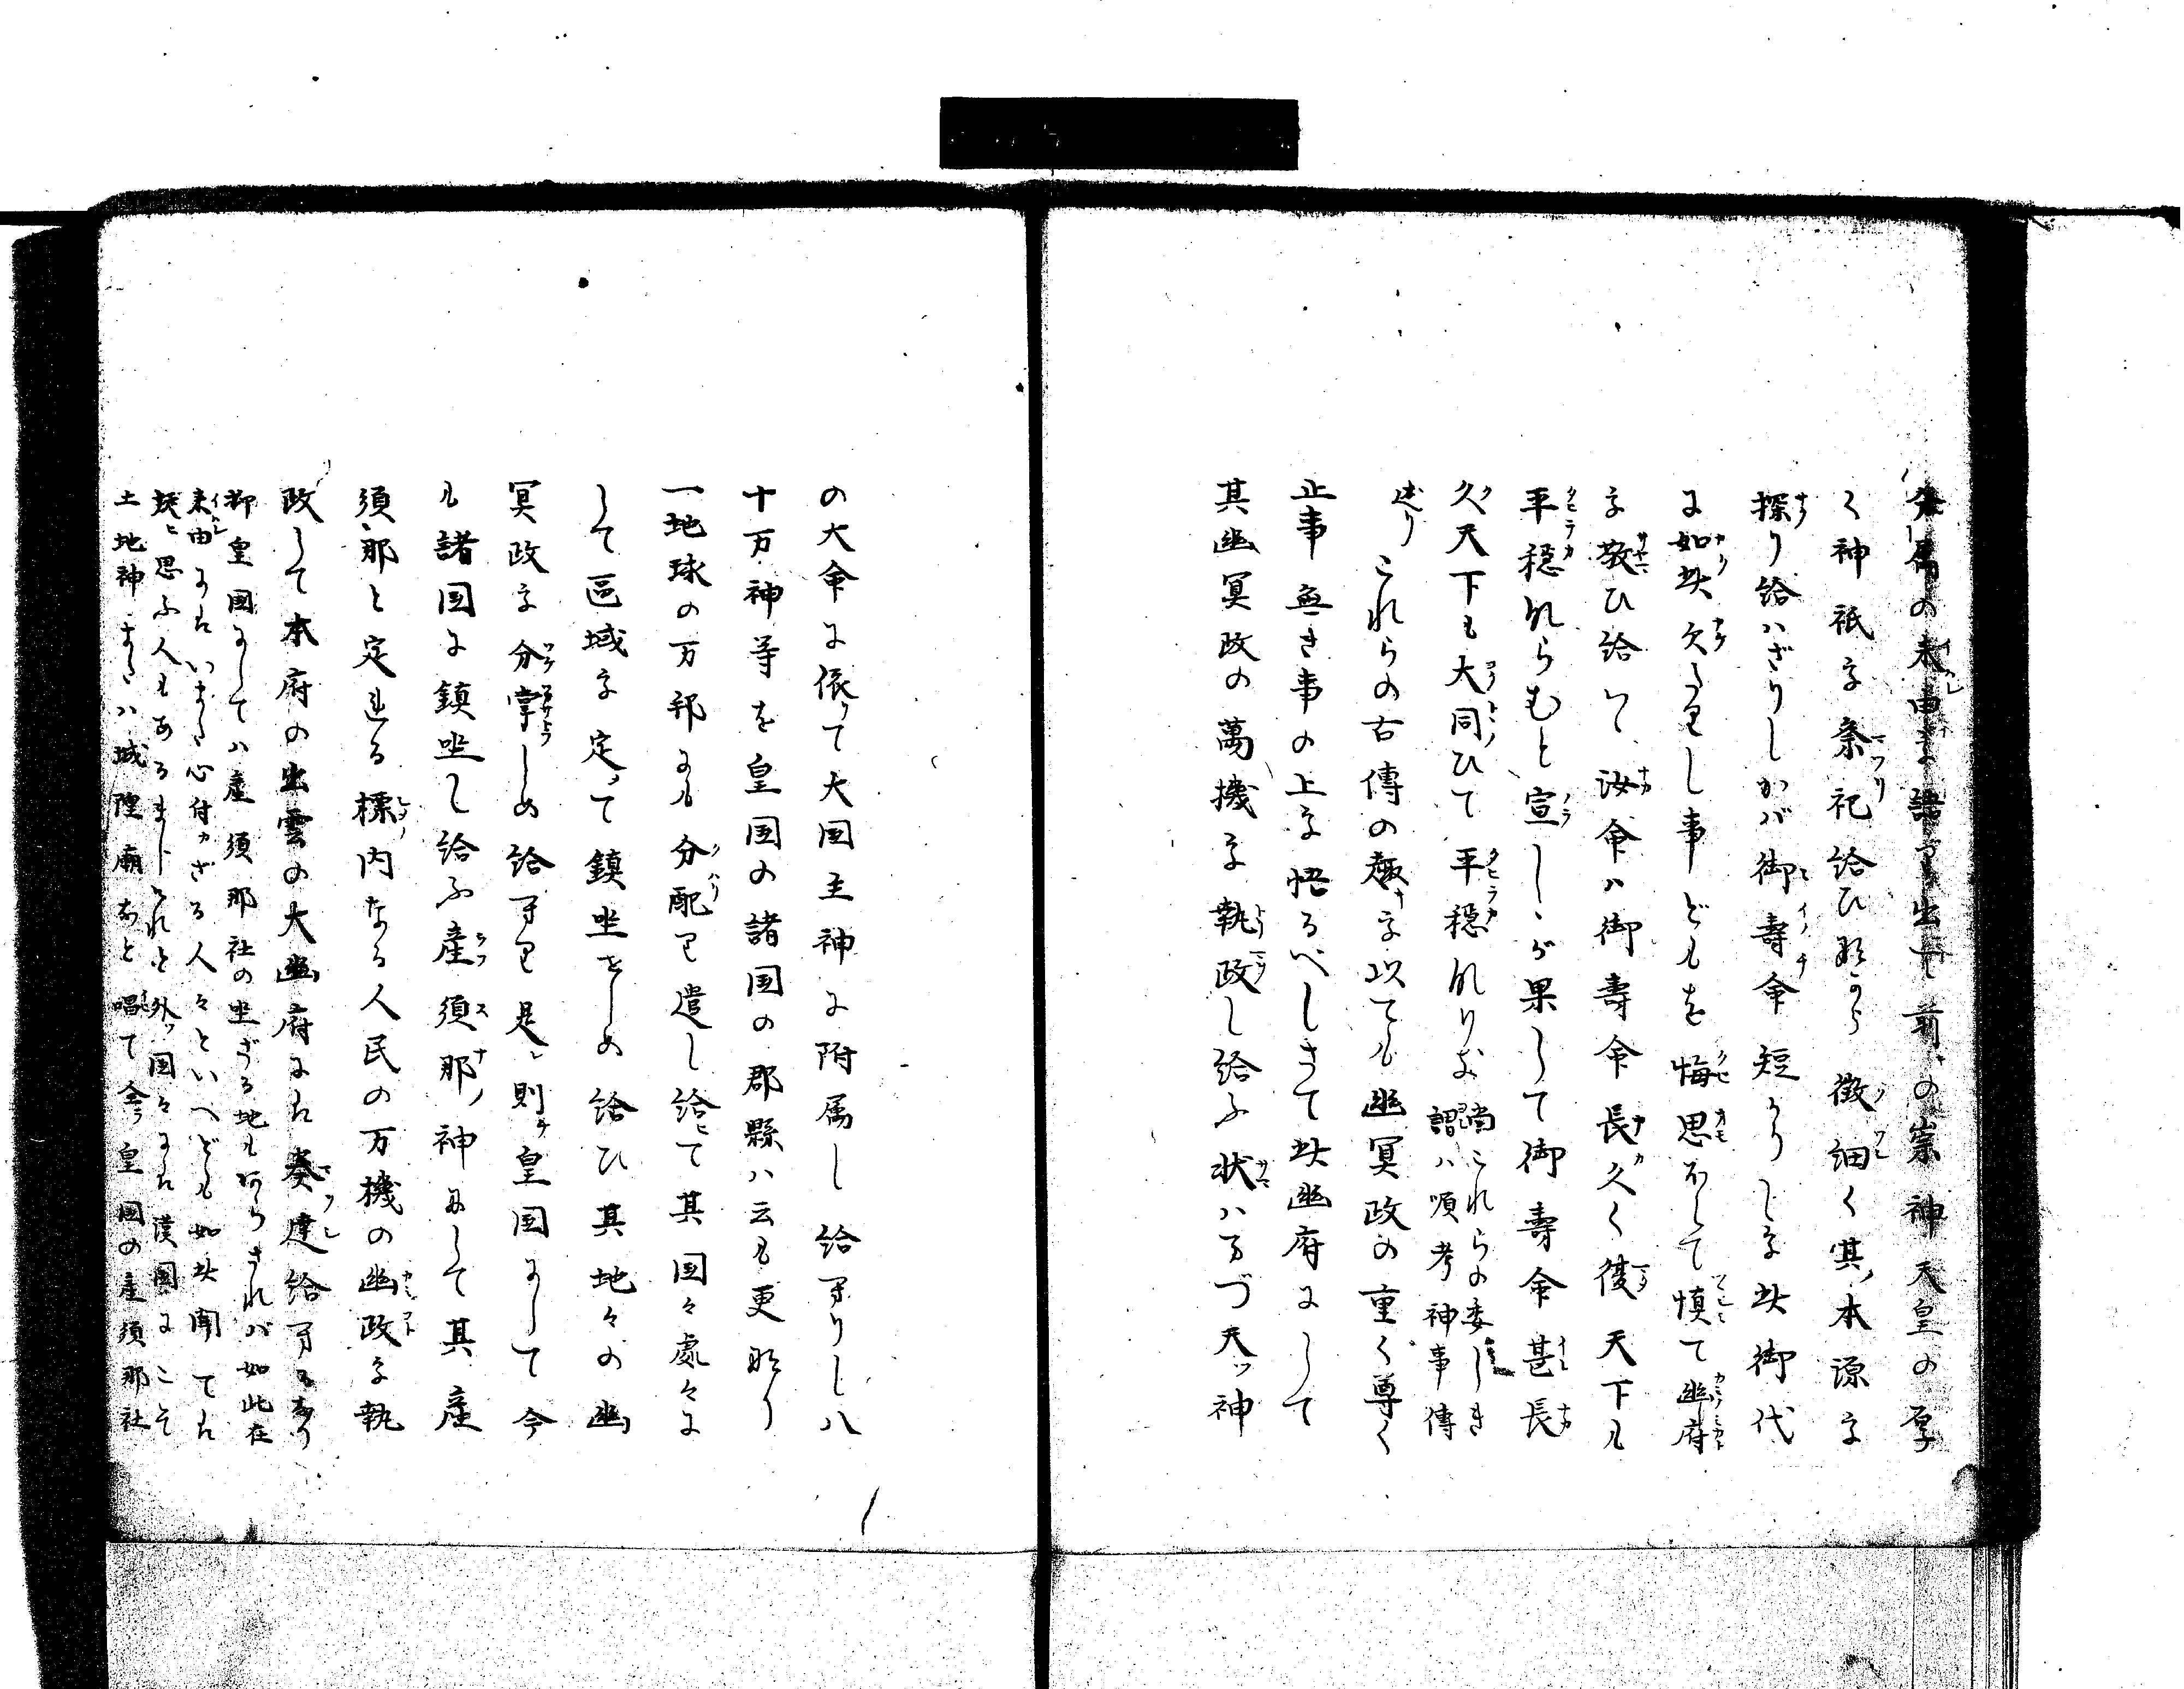 分属の来由を語り出て前の崇神天皇の厚
く神祇を祭祀給ひながら微細く其ノ本源を
探り給ハざりしかバ御壽命短かりしを此御代
に如此欠たりし事どもを悔思ほして慎て幽府
を敬ひ給ハヾ汝命ハ御壽命長久く復天下も
平穏ならむと宣しゝが果して御壽命甚長
久天下も大同ひて平穏なりき
尚これらの委しき
謂ハ順考神事傳
述り
これらの古傳の趣を以ても幽冥政の重く尊く
止事無き事の上を悟るべしさて此幽府にして
其幽冥政の萬機を執政し給ふ状ハまづ天ツ神
の大命に依て大国主神に附属し給へりし八
十万神等を皇国の諸国の郡縣ハ云も更なり
一地球の万邦にも分配り遣し給ひて其国々處々に
して區域を定て鎮坐せしめ給ひ其地々の幽
冥政を分掌しめ給へり是レ則チ皇国にして今
も諸国に鎮坐し給ふ産須那ノ神にして其産
須那と定まる標内なる人民の万機の幽政を執
政して本府の出雲の大幽府にハ奏達給へるなり
抑皇国にしてハ産須那社の坐ざる地もあらざれバ如此在
来由にハいまだ心付カざる人々といへども如此聞てハ
疑ヒ思ふ人もあるまじけれど外ツ国々にハ漢国にこそ
土地神またハ城隍廟など唱て今ツ皇国の産須那社